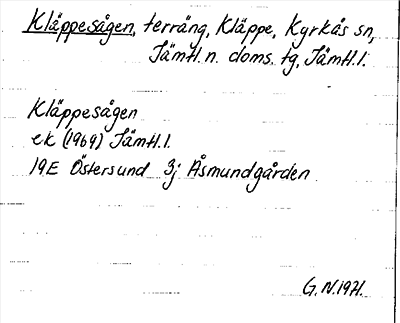 Kläppesågen, terräng, Kläppe, Kyrkås sn,
Jämtl. n. doms. tg, Jämtl. l.
Kläppesågen
ek (1969) Jämtl. l.
19E Östersund 3j Åsmundgården
G. N. 1971.